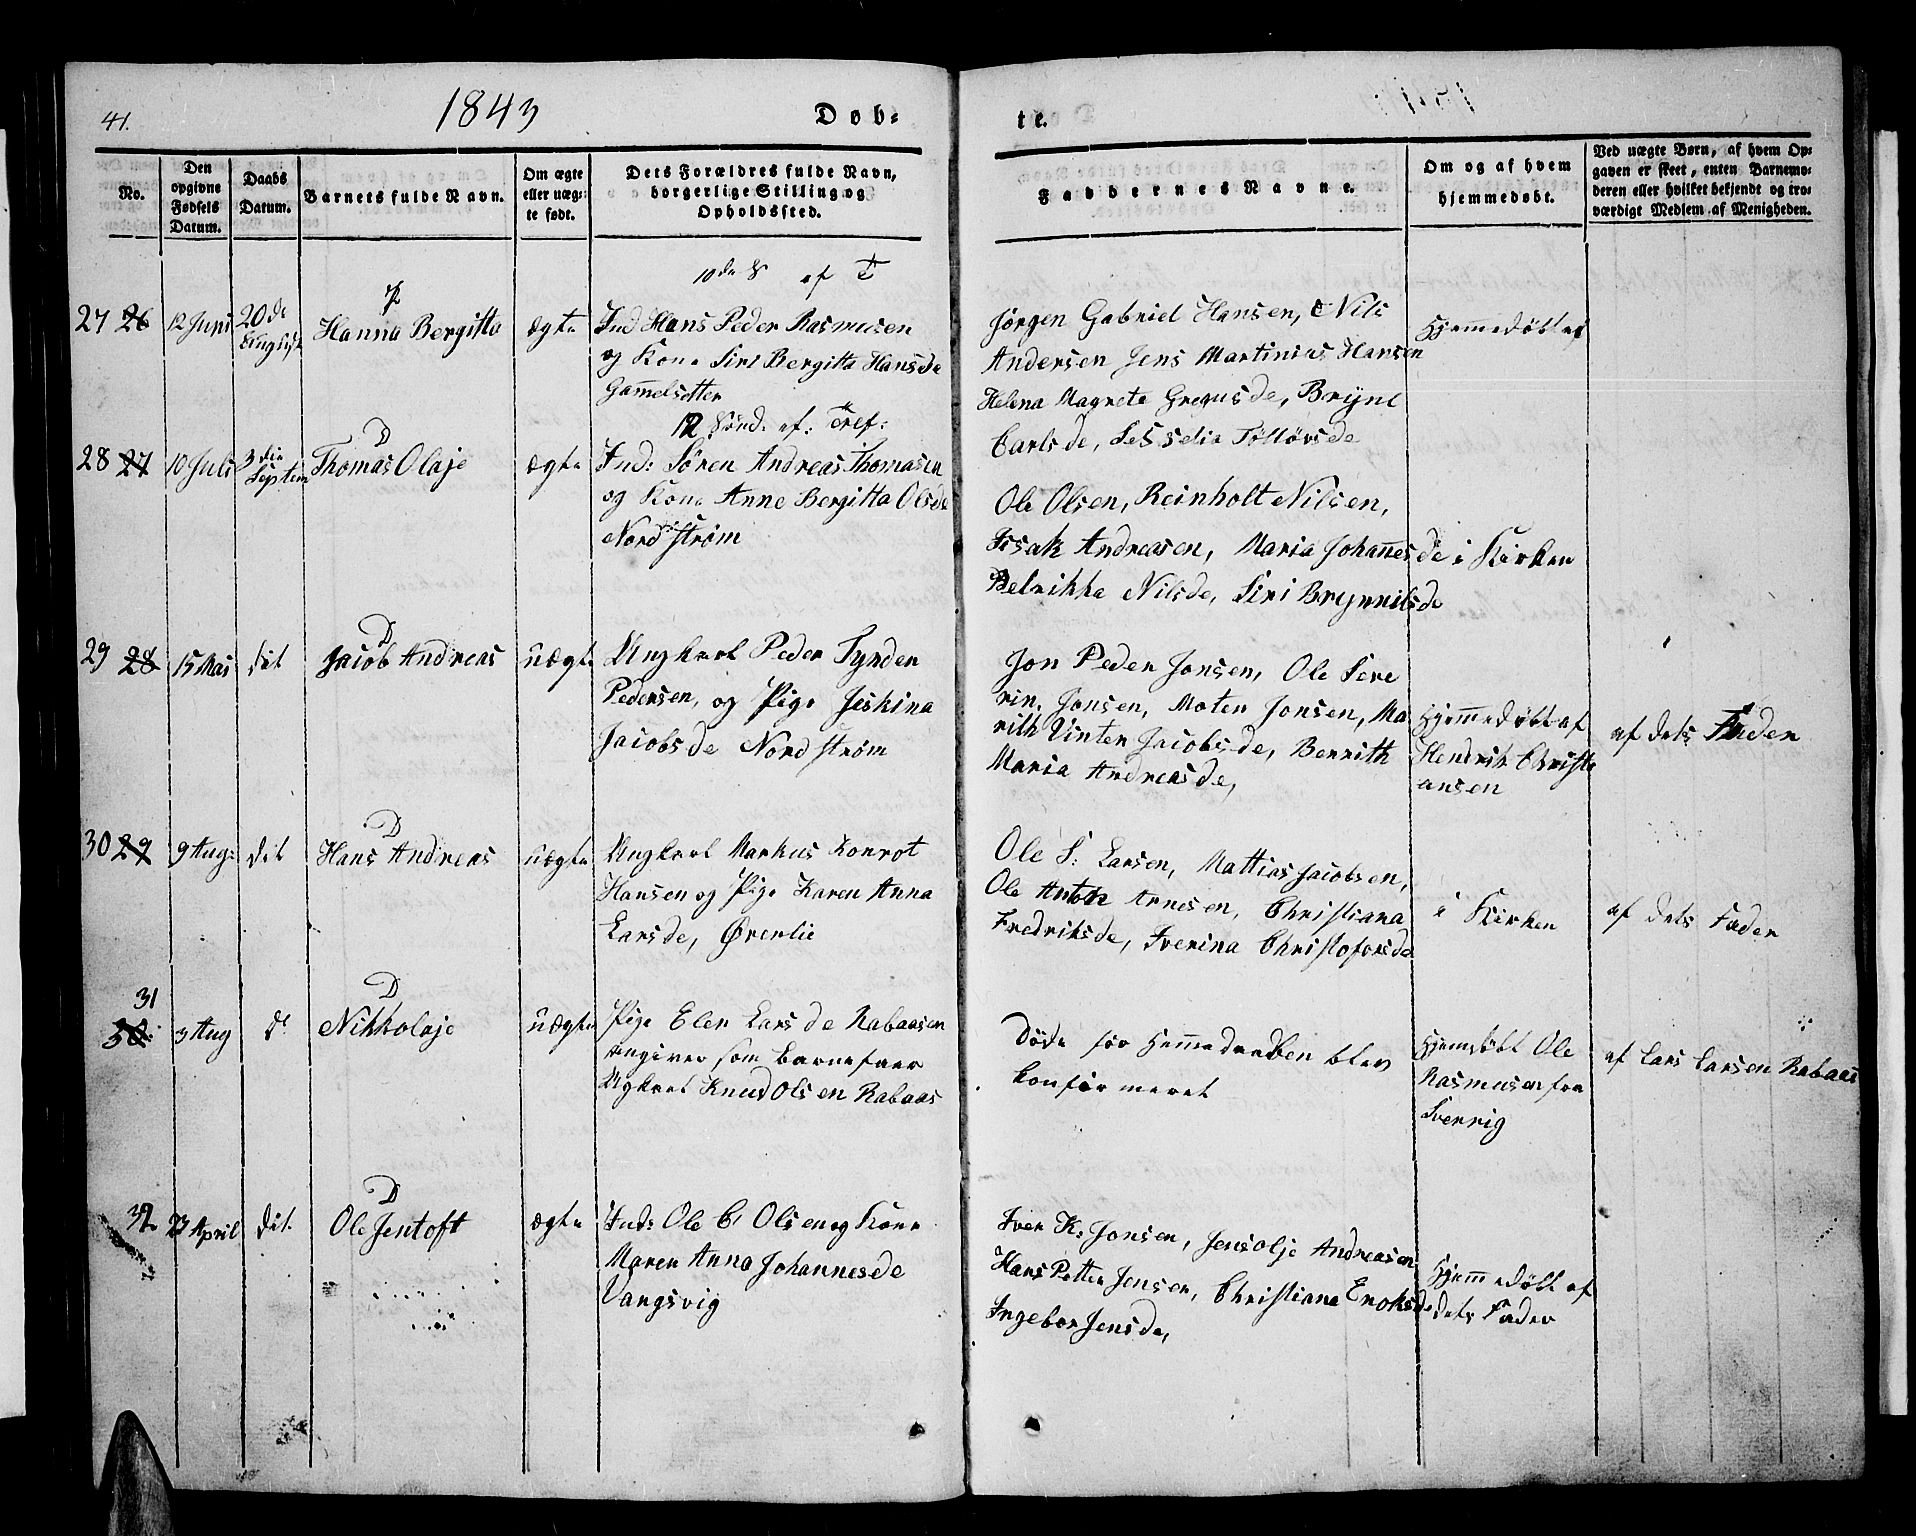 41.
1843
Døb-
te.
No.
Den opgivne Fødsels Datum.
Daabs Datum.
Barnets fulde Navn.
Om ægte eller uægte født.
Dets Forældres fulde Navn, borgerlige Stilling og Opholdssted.
Faddernes Navne.
Om og af hvem hjemmedøbt.
Ved uægte Børn, af hvem Opgaven er skeet, enten Barnemoderen eller hvilket bekjendt og troværdigt Medlem af Menigheden.
10de S af T
27 26
12 Juni
20de August
Hanna Bergitta
ægte
Ind Hans Peder Rasmusen
og Kone Siri Bergitta Hansde
Gammelsetter
Jørgen Gabriel Hansen, Nils
Andersen Jens Martinius Hansen
Helena Magrete Gregusde, Brijnl
Carlsde, Sesselia Tølløvsde
Hjemmedøbt af
12 Sönd. af: Tref:
28 27
10 Juli
3die Septem
D
Thomas Olaje
ægte
Ind: Sören Andreas Thomasen
og Kone Anne Bergitta Olsde
Nordstrøm
Ole Olsen, Reinholt Nilsen,
Isak Andreasen, Maria Johannesde
Petrikka Nilsde, Siri Brynnilsde
i Kirken
29 28
15 Mai
dit
D
Jacob Andreas
uægte
Ungkarl Peder Tynder
Pedersen, og Pige Jeskina
Jacobsde Nordstrøm
Jon Peder Jonsen, Ole Seve
rin, Jonsen, Moten Jonsen, Ma
rith Vinter Jacobsde, Berrith
Maria Andreasde,
Hjemmedøbt af
Hendrik Christi
ansen
af dets Fader
30 29
9 Aug:
dit
D
Hans Andreas
uægte
Ungkarl Markus Konrot
Hansen og Pige Karen Anna
Larsde, Øverlie
Ole S: Larsen, Mattias Jacobsen,
Ole Anton Arnesen, Christiana
Fredriksde, Iverina Christofersde
i Kirken
af dets Fader
31
30
3 Aug
dt
D
Nikkolaje
uægte
Pige Elen Larsde Rabaasen
angiver som barnefaer
Ugkarl Knud Olsen Rabaas
Døde før Hemmedaaben blev
konfirmeret
Hjemdøbt Ole
Rasmusen fra
Sverrig
af Lars Larsen Rabaas
32
23 April
dit.
D
Ole Jentoft
ægte
Ind: Ole C. Olsen og Kone
Maren Anna Johannesde
Vangsvig
Iver K. Jonsen, Jensolje Andreasen
Hans Petter Jensen, Christiana Enoksde
Ingebor Jensde,
Hjemmedøbt af
dets Fader